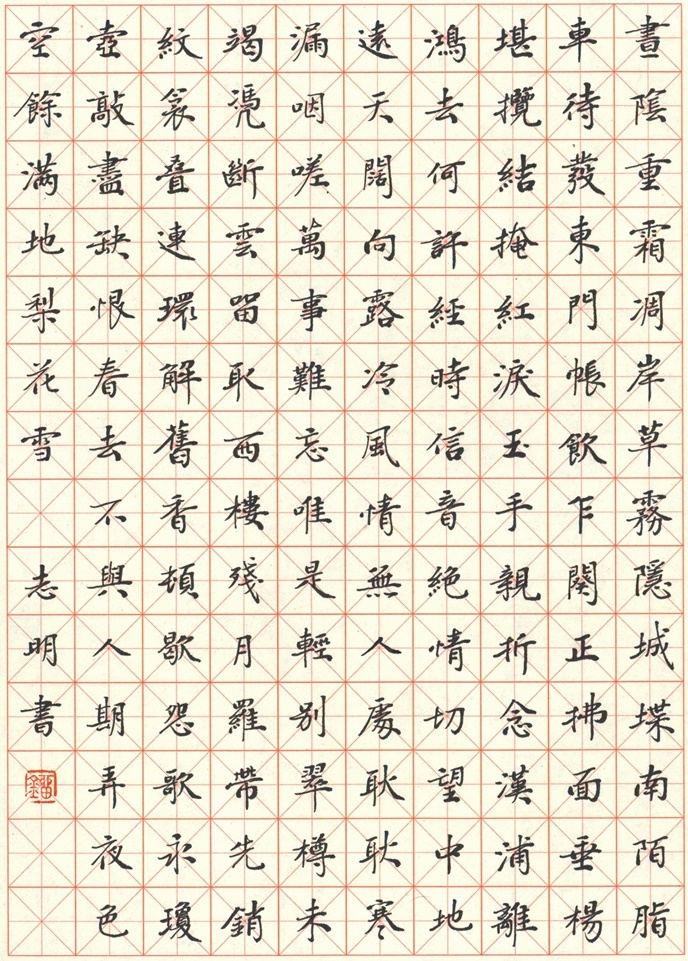 晝陰重霜凋岸草霧隱城堞南陌脂
車待發東門帳飲乍闋正拂面垂楊
堪攬結掩紅淚玉手親折念漢浦離
鴻去何許經時信音絕情切望中地
遠天闊向露冷風情無人處耿耿寒
漏咽嗟萬事難忘唯是輕別翠樽未
竭凴斷雲留取西樓殘月羅帶先銷
紋衾叠連環解舊香頓歇怨歌永瓊
壺敲盡缺恨春去不與人期弄夜色
空餘滿地梨花雪
志明書